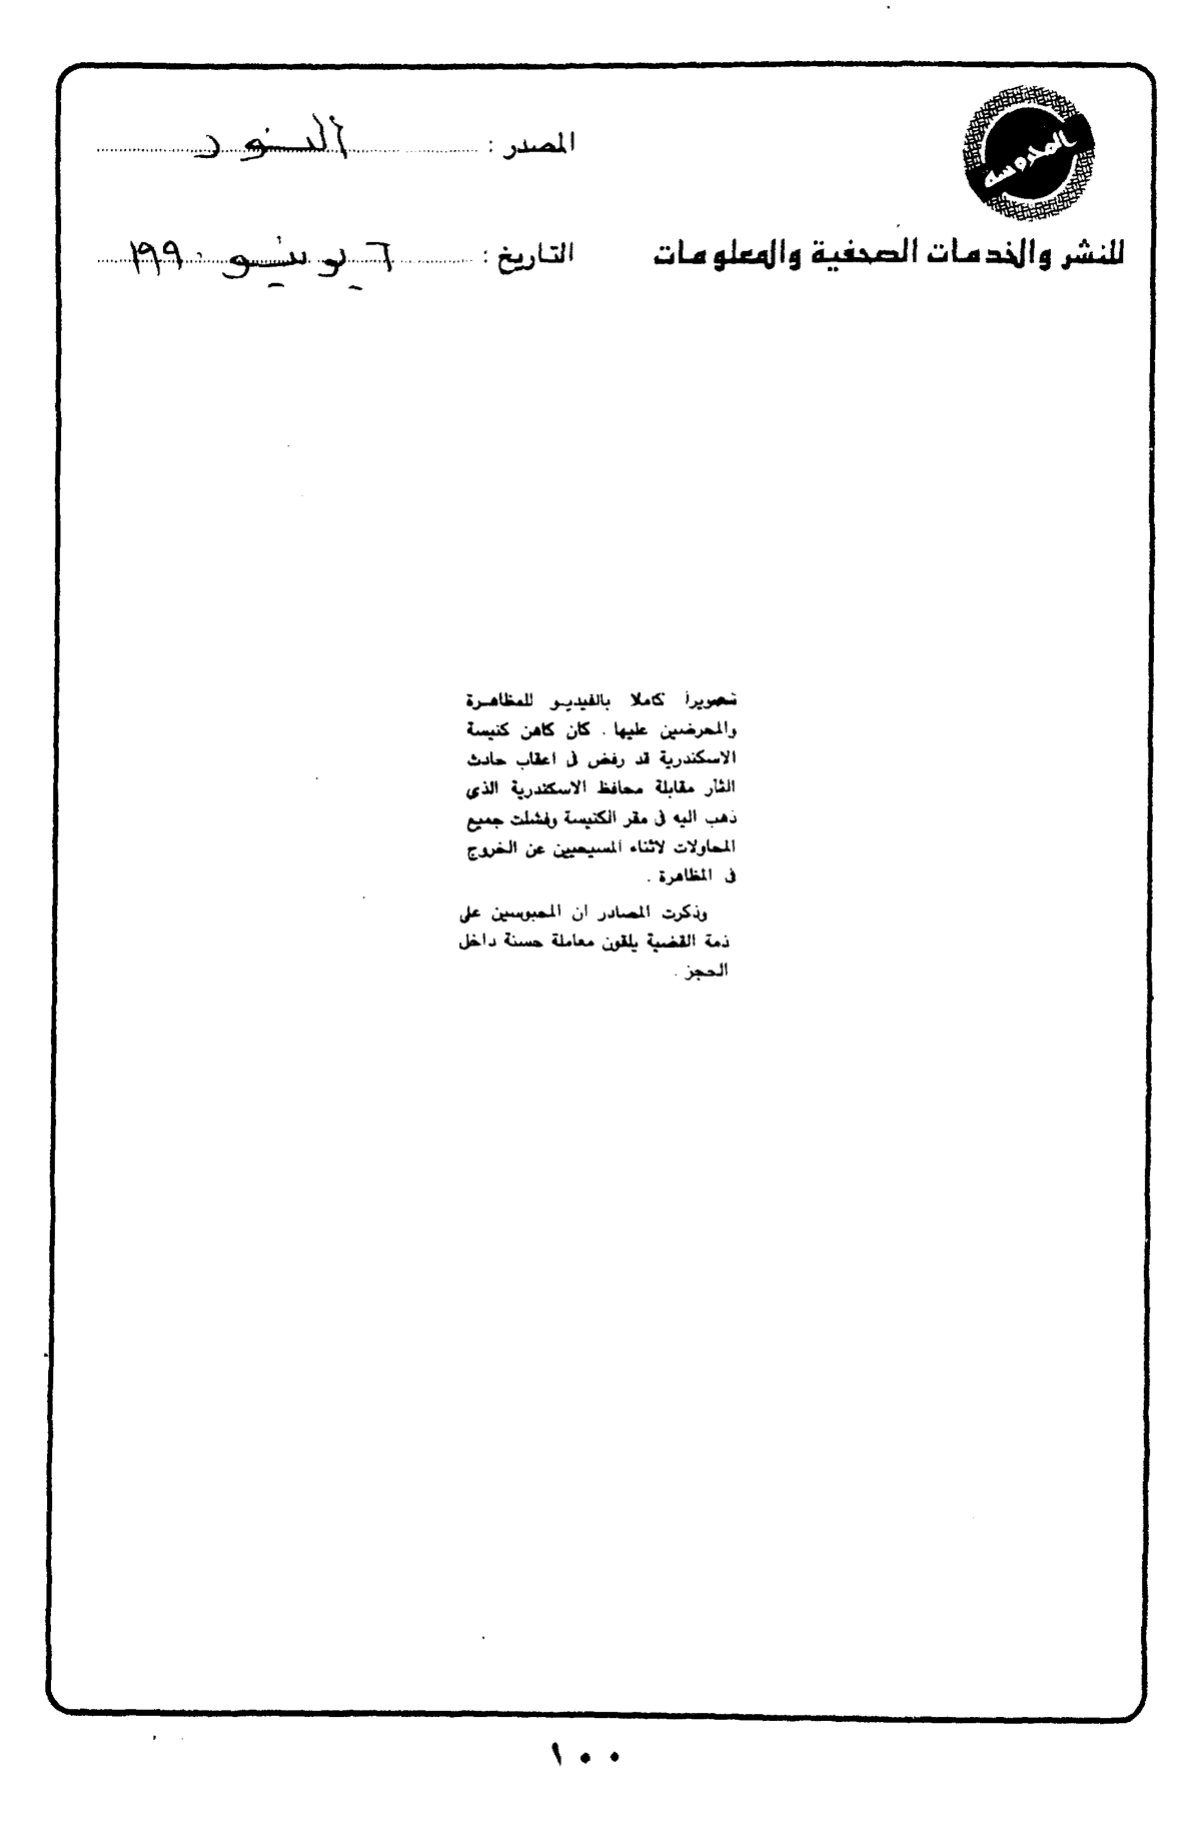 المحروسة
المصدر : النور
للنشر والخدمات الصحفية والمعلومات
التاريخ : ٦ يونيو ١٩٩٠
تصويراً كاملا بالفيديو للمظاهرة
والمحرضين عليها . كان كاهن كنيسة
الاسكندرية قد رفض فى اعقاب حادث
الثار مقابلة محافظ الاسكندرية الذى
ذهب اليه فى مقر الكنيسة وفشلت جميع
المحاولات لاثناء المسيحيين عن الخروج
فى المظاهرة .
وذكرت المصادر ان المحبوسين على
ذمة القضية يلقون معاملة حسنة داخل
الحجز .
١٠٠